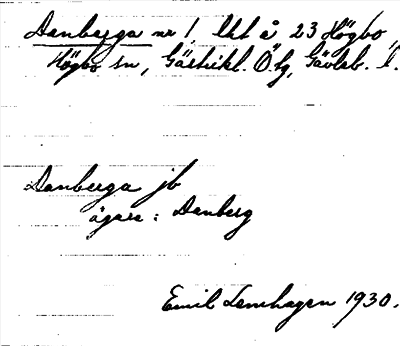 Danberga nr 1, lht å 23 Högbo,
Högbo sn, Gästrikl. Ö. tg, Gävleb. l.
Danberga jb
ägare: Danberg
Emil Lemhagen 1930.